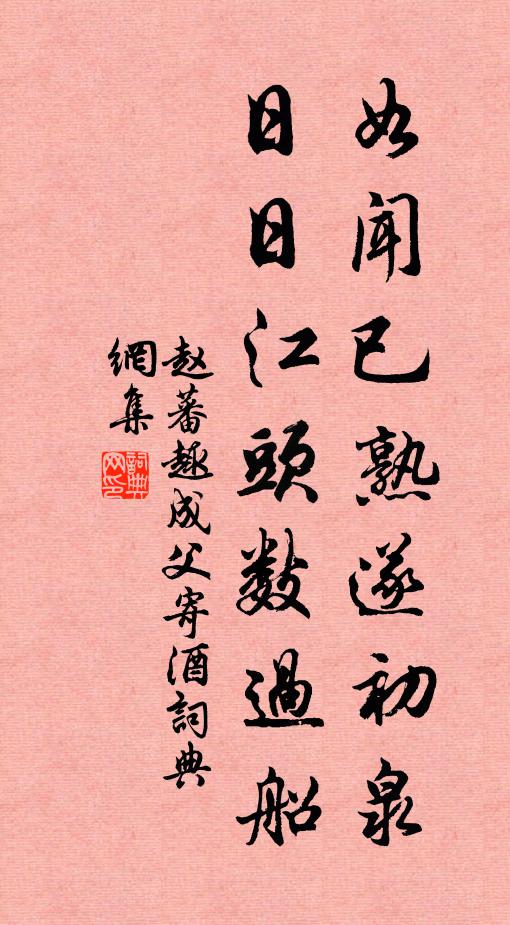 如闻已熟遂初泉
日日江頭数過船
赵蕃趣成父寄酒詞典
網集
詞典网印